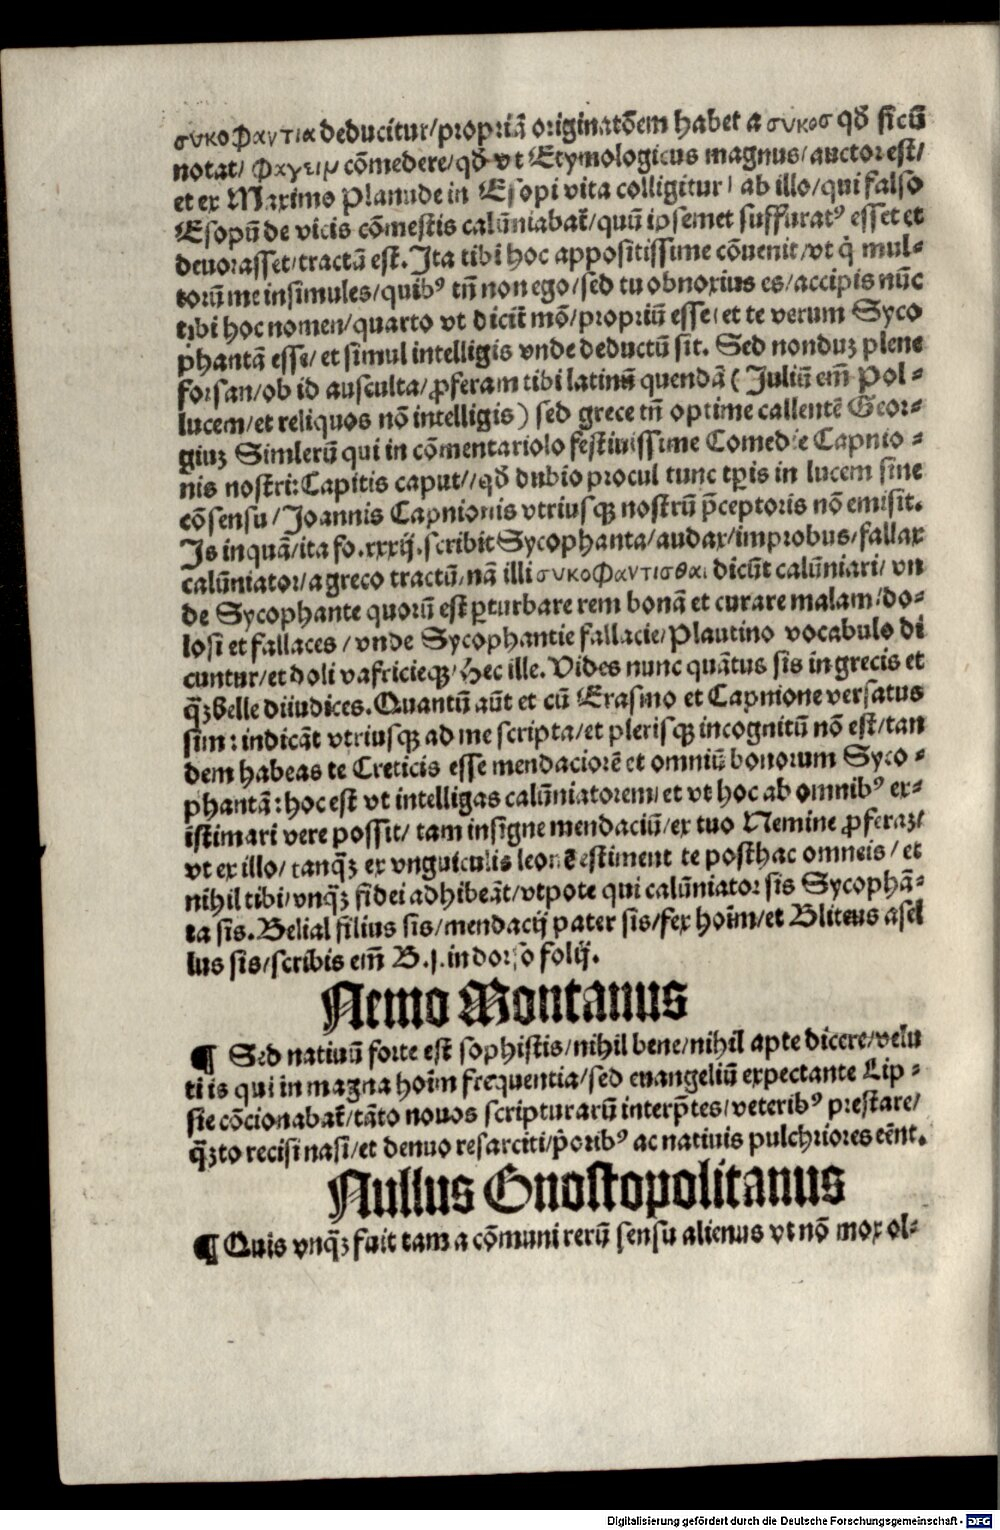 συκοφαντια deducitur/propriā originatōem habet a συκοσ qď ficū
notat/ φαγειν cōmedere/qď vt Etymologicus magnus/auctor est/
et ex Maximo Planude in Esopi vita colligitur/ ab illo/qui falso
Esopū de vicis cōmestis calūniabat̄/quū ipsemet suffuratꝰ esset et
deuorasset/tractā est. Ita tibi hoc appositissime cōuenit/vt q̇ mul⸗
torū me insimules/quibꝰ tñ non ego/sed tu obnoxius es/accipis nūc
tibi hoc nomen/quarto vt dicit̄ mō/propriū esse/et te verum Syco
phantā esse/et simul intelligis vnde deductū sit. Sed nonduz plene
forsan/ob id ausculta/ꝓferam tibi latinū quendā (Juliū em̄ Pol⸗
lucem/et reliquos nō intelligis) sed grece tñ optime callentē Geor⸗
giuz Simlerū qui in cōmentariolo festiuissime Comedie Capnio⸗
nis nostri: Capitis caput//qď dubio procul tunc tꝑis in lucem sine
cōsensu/Joannis Capnionis vtriusqꝫ nostrū p̄ceptoris nō emisit.
Is inquā/ita fo.xxxij.scribit Sycophanta/audax/improbus/fallax
calūniator/a greco tractū/nā illi συκοφαντισθαι dicūt calūniari/ vn
de Sycophante quorū est ꝑturbare rem bonā et curare malam/do⸗
losi et fallaces/vnde Sycophantie fallacie/Plautino vocabulo di
cuntur/et doli vafricieqꝫ/Hec ille. Vides nunc quātus sis in grecis et
q̄ꝫbelle diiudices. Quantū aūt et cū Erasmo et Capnione versatus
sim: indicāt vtriusqꝫ ad me scripta/et plerisqꝫ incognitū nō est/tan
dem habeas te Creticis esse mendaciorē et omniū bonorum Syco⸗
phantā: hoc est vt intelligas calūniatorem/et vt hoc ab omnibꝰ ex⸗
istimari vere possit/ tam insigne mendaciū/ex tuo Nemine ꝓferaz/
vt ex illo/ tanq̄ꝫ ex vnguiculis leonē estiment te posthac omneis/ et
nihil tibi/vnq̄ꝫ fidei adhibeāt/vtpote qui calūniator sis Sycophā⸗
ta sis. Belial filius sis/mendacij pater sis/fex hoim̄/et Bliteus asel
lus sis/scribis em̄ B.j.in dorso folij.
Nemo Montanus
¶ Sed natiuū forte est sophistis/nihil bene/nihil apte dicere/velu
ti is qui in magna hoim̄ frequentia/sed euangeliū expectante Lip⸗
sie cōcionabat̄/tāto nouos scripturarū interp̄tes/veteribꝰ prestare/
q̄ꝫto recisi nasi/et denuo resarciti/p̄oribꝰ ac natiuis pulchriores eēnt.
Nullus Gnostopolitanus
¶ Quis vnq̄ꝫ fuit tam a cōmuni rerū sensu alienus vt nō mox ol⸗
Digitalisierung gefördert durch die Deutsche Forschungsgemeinschaft - DFG